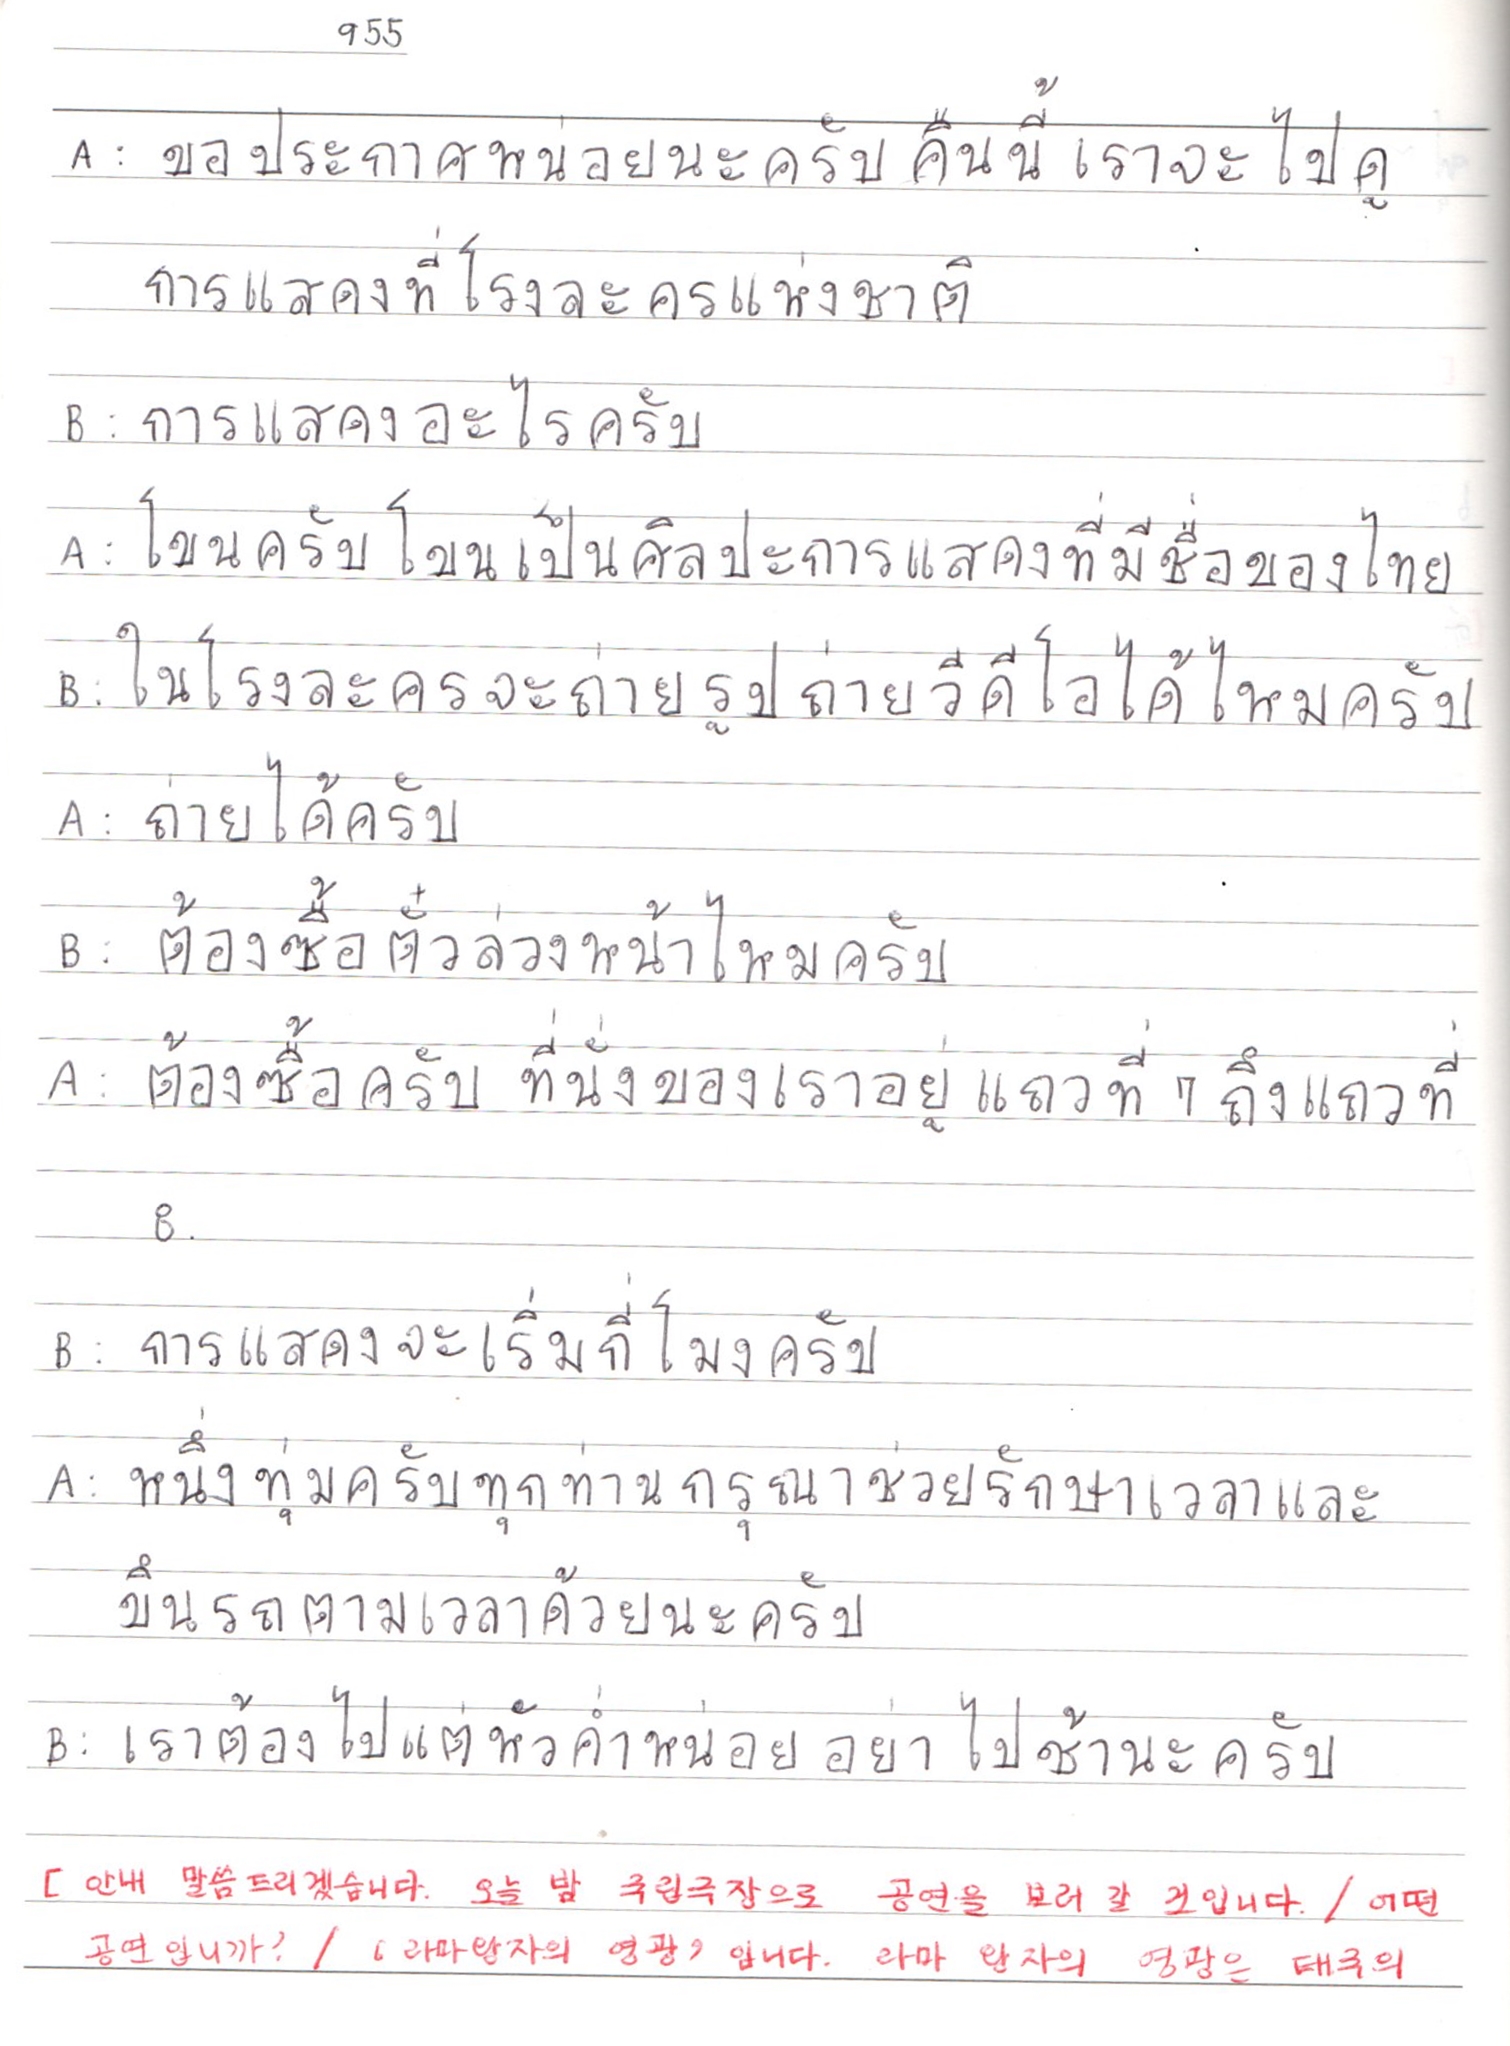 955
A : ขอประกาศหน่อยนะครับ คืนนี้ เราจะไปดู
การแสดงที่โรงละครแห่งชาติ
B : การแสดงอะไรครับ
A : โขนครับ โขนเป็นศิลปะการแสดงที่มีชื่อของไทย
B : ในโรงละครจะถ่ายรูปถ่ายวีดีโอได้ไหมครับ
A : ถ่ายได้ครับ
B : ต้องซื้อตั๋วล่วงหน้าไหมครับ
A : ต้องซื้อครับ ที่นั่งของเราอยู่แถวที่ 7 ถึงแถวที่
8.
B : การแสดงจะเริ่มกี่โมงครับ
A : หนึ่งทุ่มครับทุกท่านกรุณาช่วยรักษาเวลาและ
ขึ้นรถตามเวลาด้วยนะครับ
B : เราต้องไปแต่หัวค่ำหน่อย อย่าไปช้านะครับ
[ 안내 말씀드리겠습니다. 오늘 밤 국립극장으로 공연을 보러 갈 것입니다. / 어떤
공연입니까? / '라마왕자의 영광' 입니다. 라마 왕자의 영광은 태국의